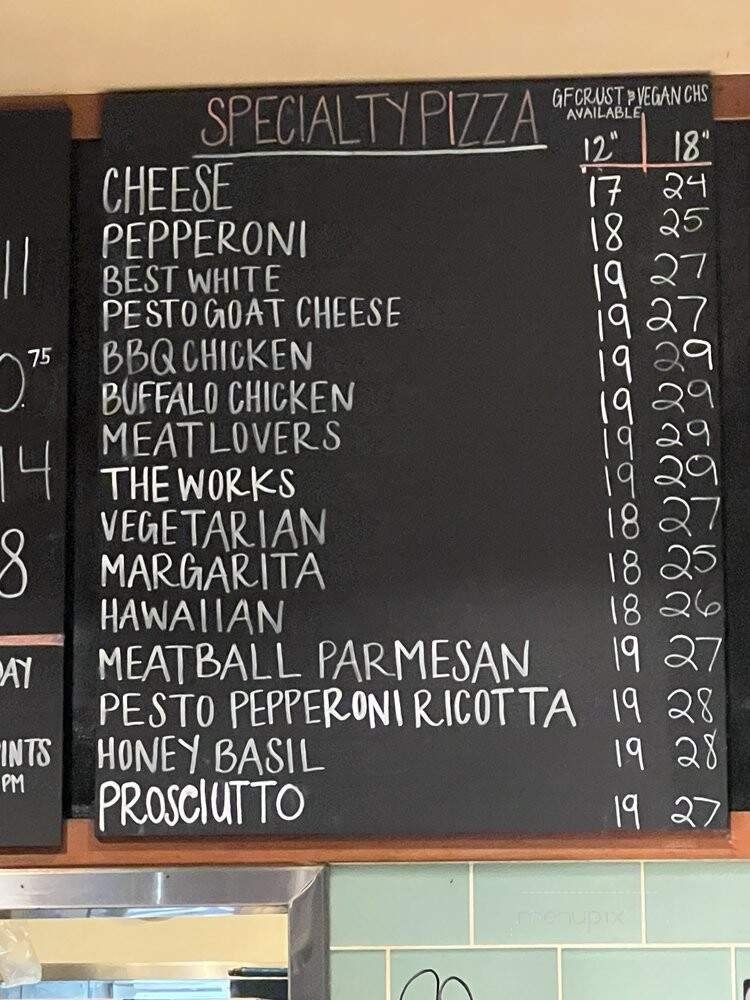 SPECIALTY PIZZA
GF CRUST & VEGAN CHS
AVAILABLE
12" 18"
CHEESE 17 24
PEPPERONI 18 25
BEST WHITE 19 27
PESTO GOAT CHEESE 19 27
BBQ CHICKEN 19 29
BUFFALO CHICKEN 19 29
MEAT LOVERS 19 29
THE WORKS 19 29
VEGETARIAN 18 27
MARGARITA 18 25
HAWAIIAN 18 26
MEATBALL PARMESAN 19 27
PESTO PEPPERONI RICOTTA 19 28
HONEY BASIL 19 28
PROSCIUTTO 19 27
11
0.75
14
8
DAY
PINTS
PM
menupix